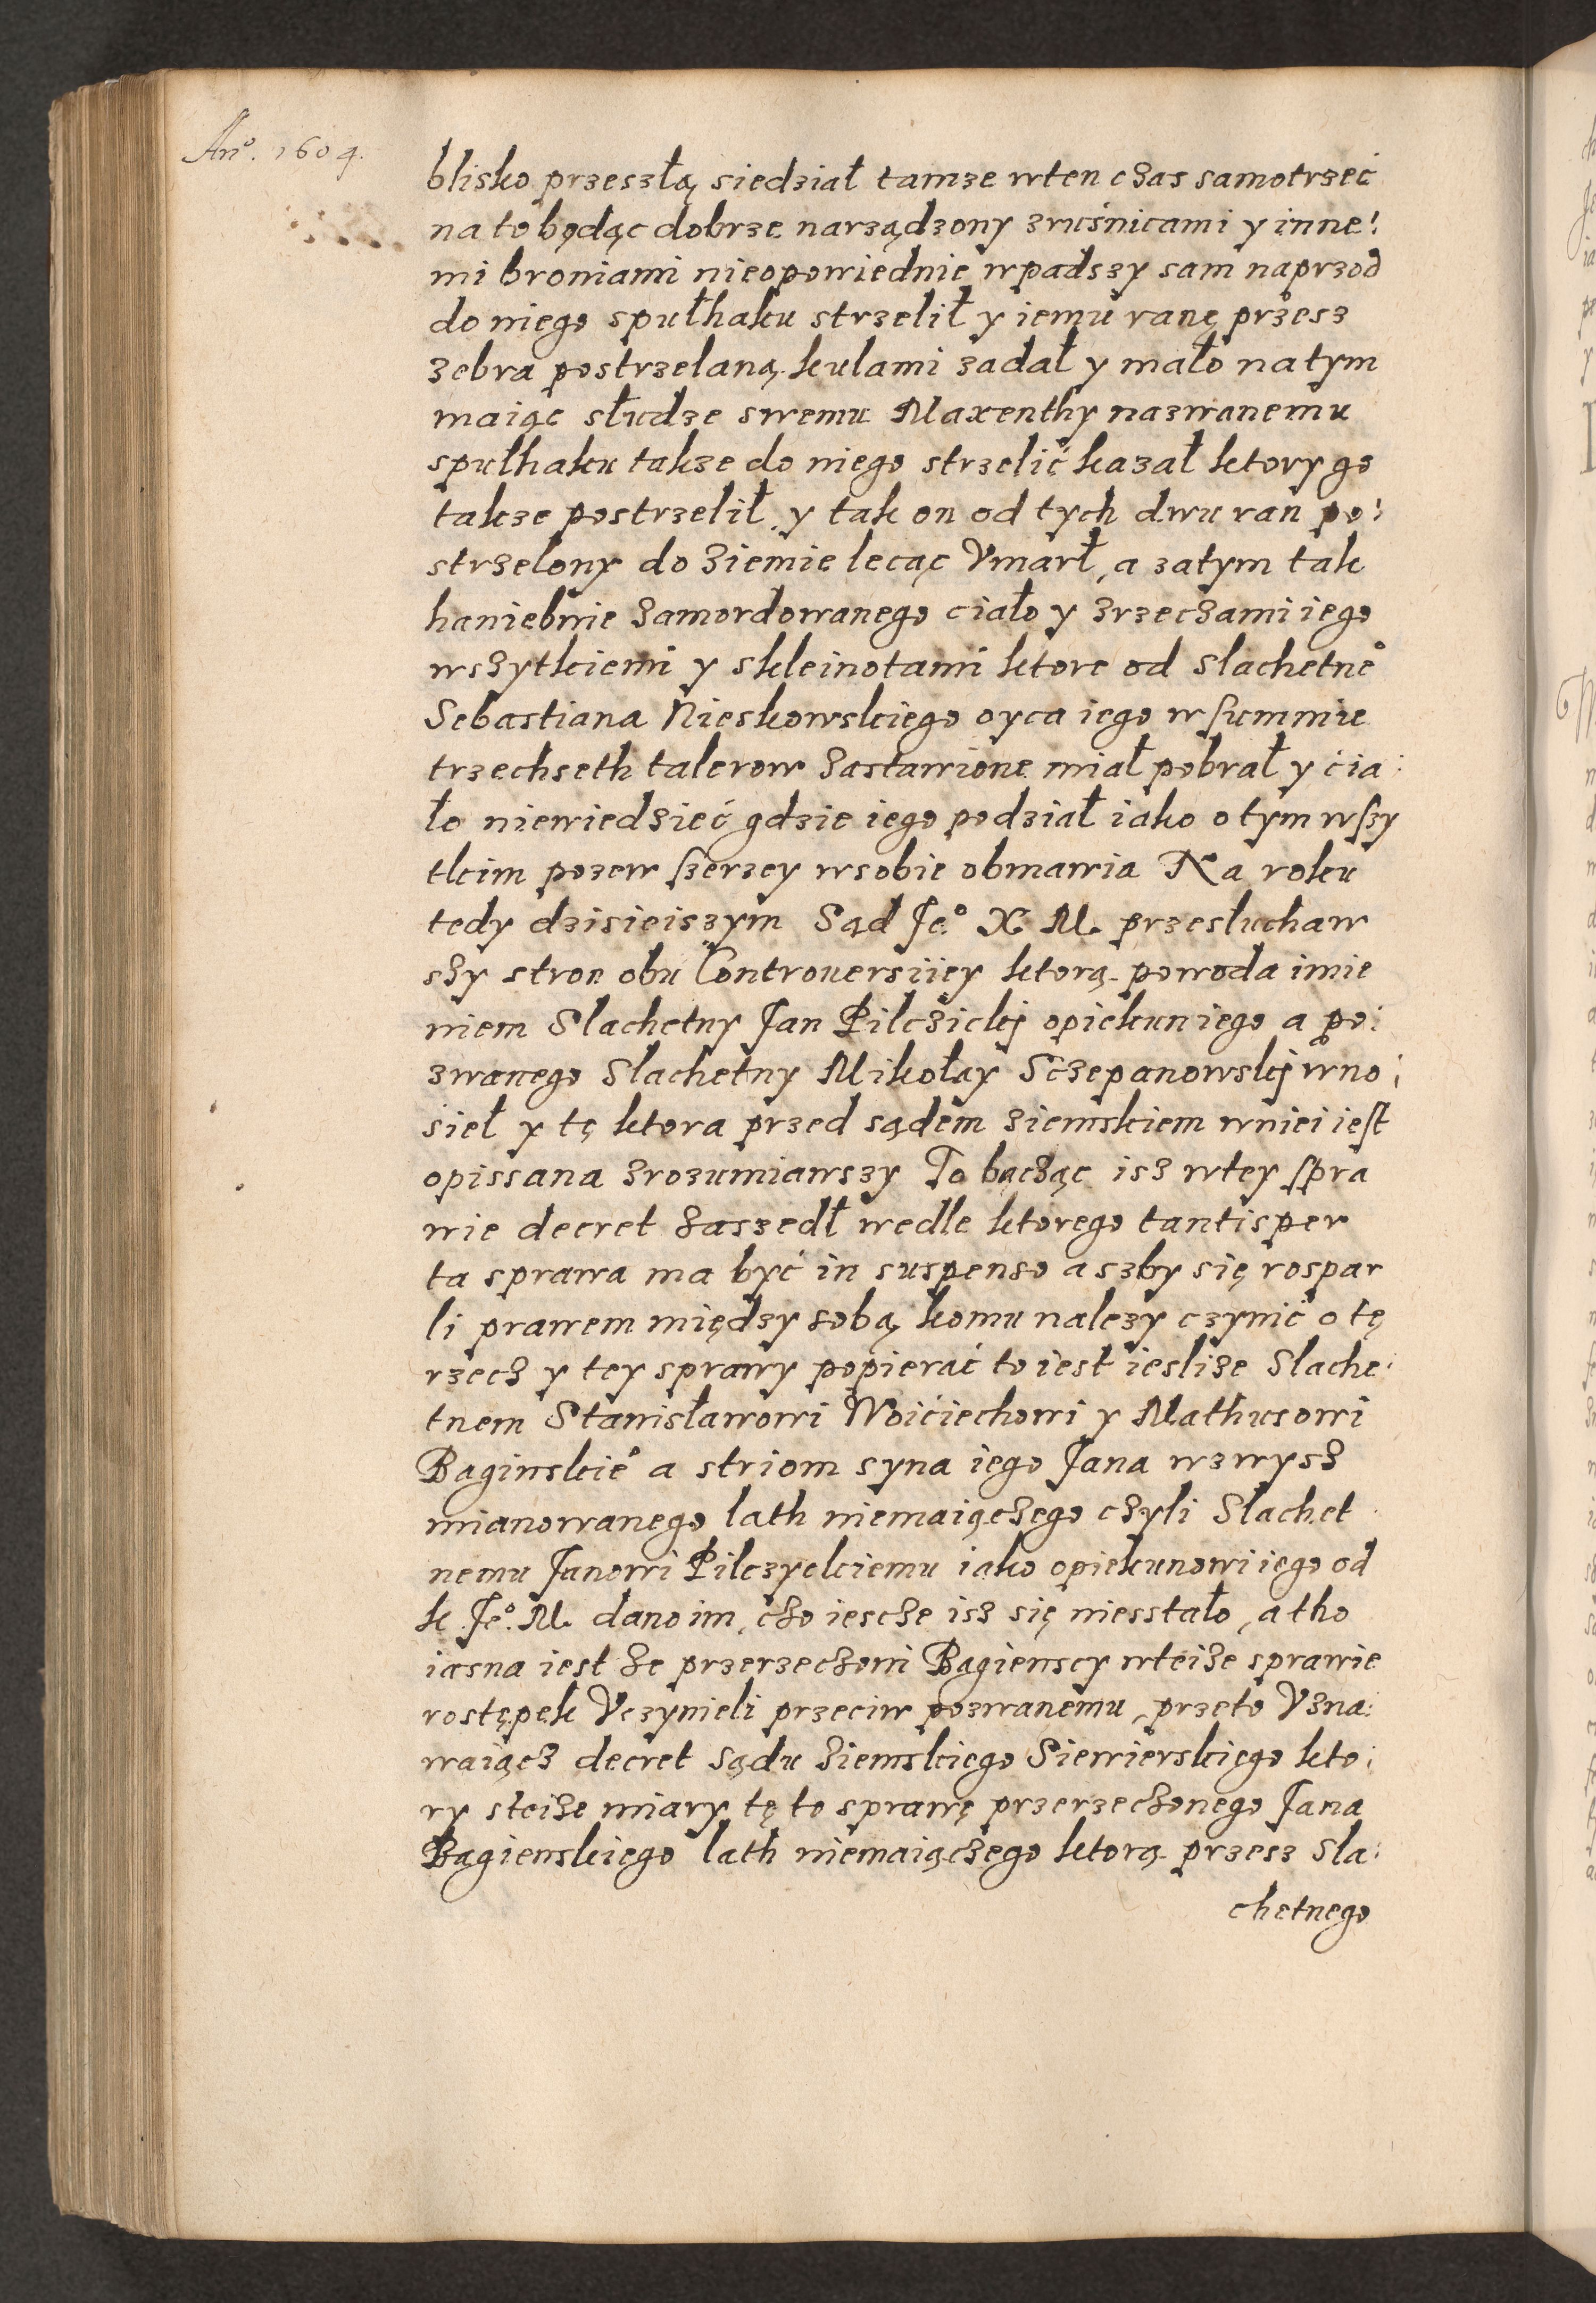 Anº. 1604.
blisko przeszłą siedział tamze wten czas samotrzeć
na to będąc dobrze narządzony zruśnicami y inne:
mi broniami nieopowiednie wpadszy sam naprzod
do niego spułhaku strzelił y iemu ranę przesz
zebra postrzelaną kulami zadał y mało na tym
maiąc słudze swemu Maxenthy nazwanemu
spułhaku takze do niego strzelić kazał ktory go
takze postrzelił y tak on od tych dwu ran po:
strzelony do ziemie lecąc Vmarł, a zatym tak
haniebnie zamordowanego ciało y zrzeczami iego
wszytkiemi y skleinotami ktore od slachetneº
Sebastiana Nieskowskiego oyca iego w summie
trzechseth talerow zastawione miał pobrał y ćia:
ło niewiedzieć gdzie iego podział iako o tym wszy
tkim pozew szerzey wsobie obmawia Na roku
tedy dzisieiszym Sąd Jeº X M. przesłuchaw
szy stron obu Controuersiiey ktorą powoda imie
niem Slachetny Jan Pilczickj opiekun iego a po:
zwanego Slachetny Mikołay Sczepanowskj wno:
sieł y tę ktora przed sądem ziemskiem wniei iest
opissana zrozumiawszy To bącząc isz wtey spra
wie decret zaszedł wedle ktorego tantisper
ta sprawa ma być in suspenso aszby się rospar
li prawem między sobą komu nalezy czynić o tę
rzecz y tey sprawy popierać to iest ieslize Slache:
tnem Stanisławowi Woićiechowi y Mathusowi
Baginskieº a striom syna iego Jana wzwysz
mianowanego lath niemaiączego czyli Slachet
nemu Janowi Pilczyckiemu iako opiekunowi iego od
k Jeº. M. dano im, czo iescze isz się niesstało, a tho
iasna iest ze przerzeczoni Bagienscy wteize sprawie
rostępek Vczynieli przeciw pozwanemu, przeto Vzna:
waiącz decret Sądu ziemskiego Siewierskiego kto:
ry steize miary tę to sprawę przerzeczonego Jana
Bagienskiego lath niemaiączego ktorą przesz Sla:
chetnego